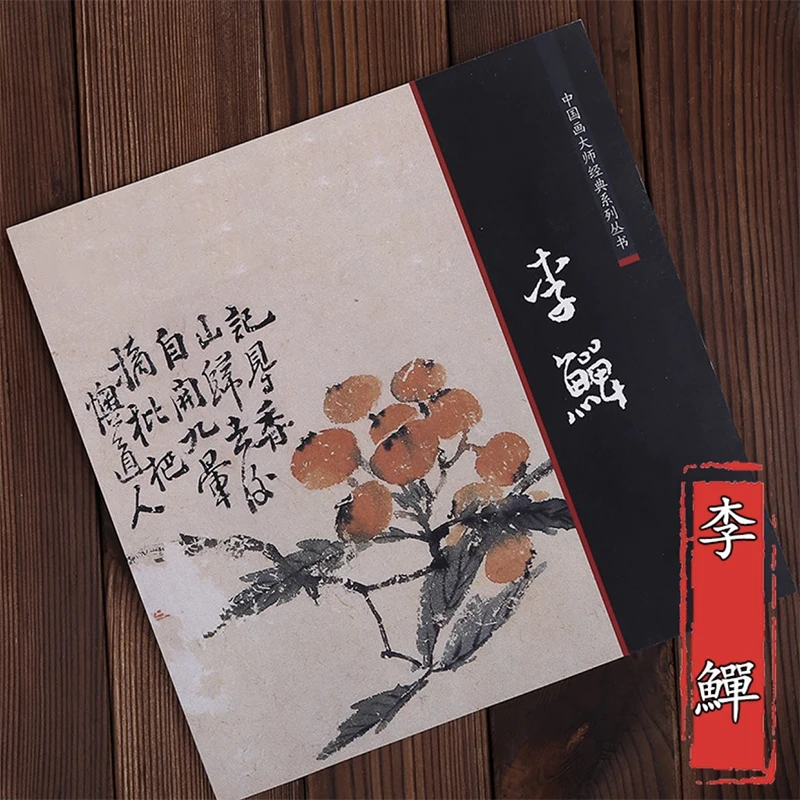 中国画大师经典系列丛书
李鱓
記香
山鮮去後
自開九
摘枇杷
懊道人
李鱓